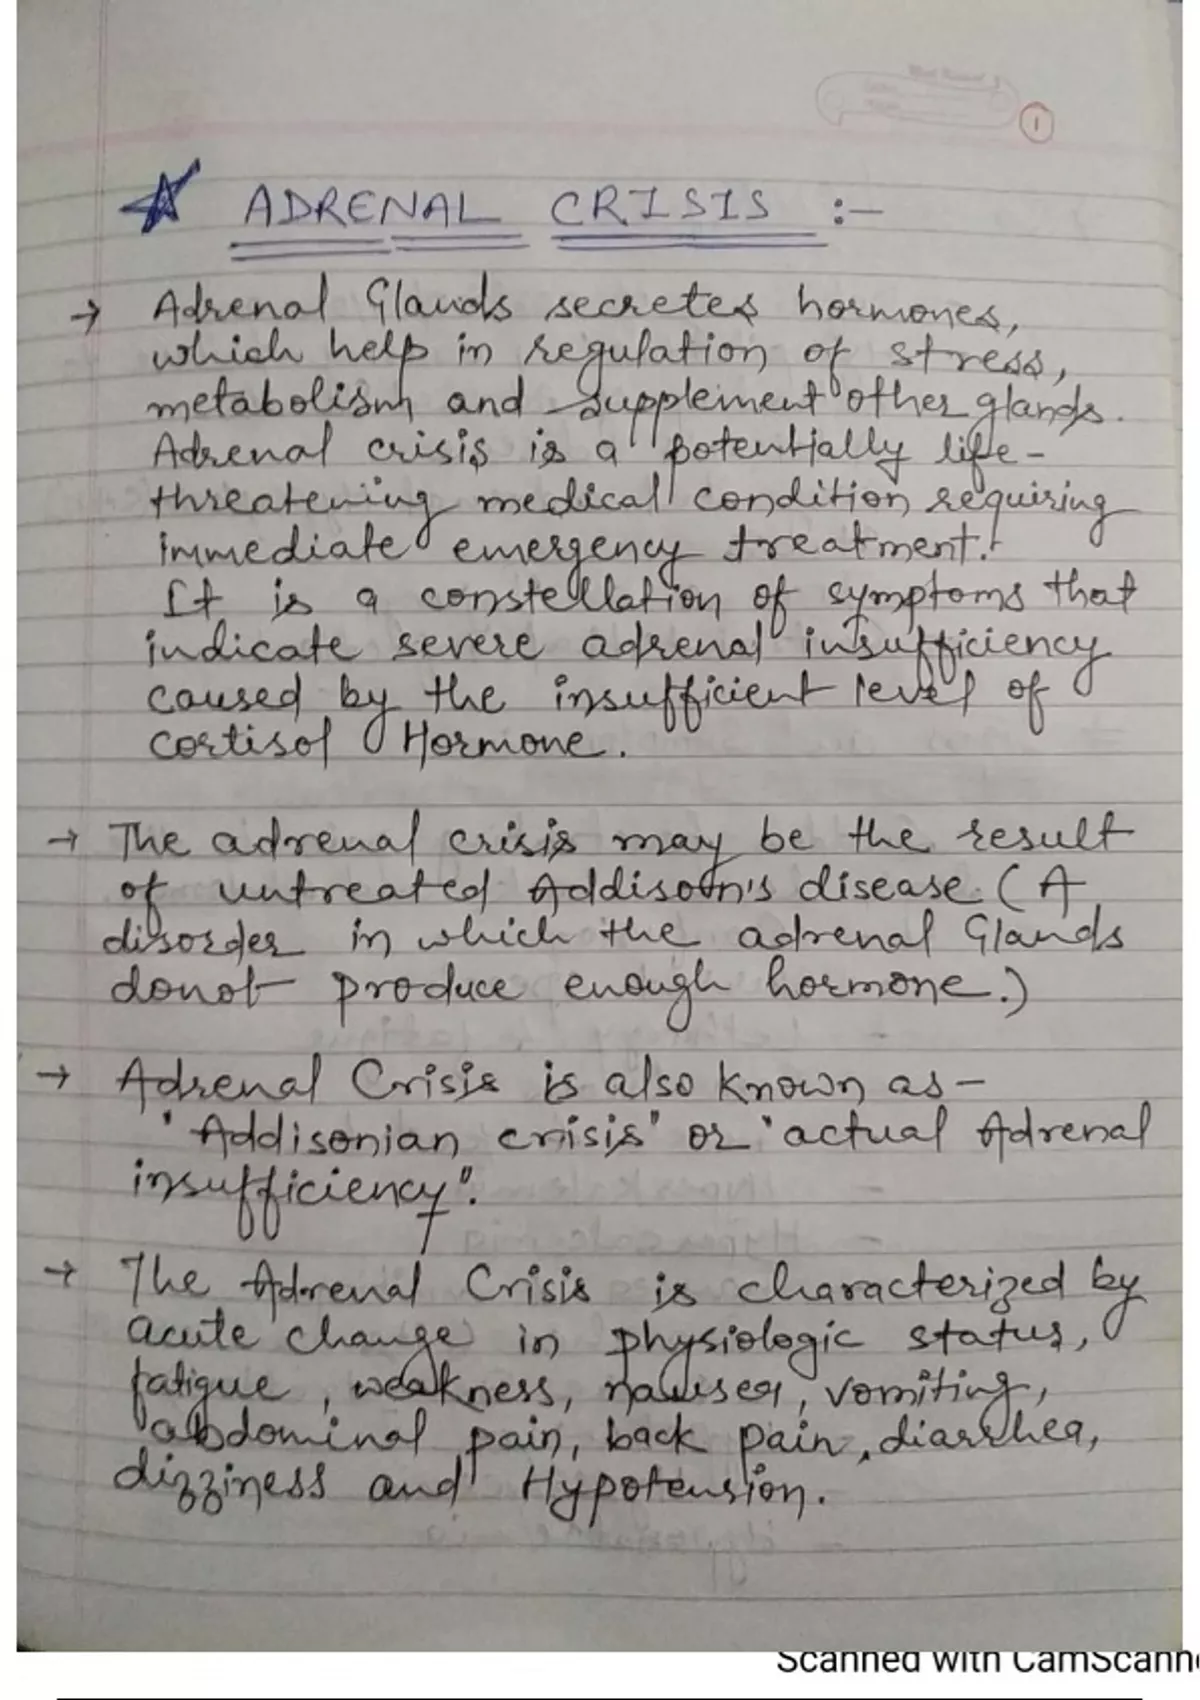 1
ADRENAL CRISIS :-
→ Adrenal Glands secretes hormones,
which help in regulation of stress,
metabolism and supplement other glands.
Adrenal crisis is a potentially life-
threatening medical condition requiring
immediate emergency treatment.
It is a constellation of symptoms that
indicate severe adrenal insufficiency
caused by the insufficient level of
cortisol Hormone.
→ The adrenal crisis may be the result
of untreated Addison's disease. (A
disorder in which the adrenal Glands
donot produce enough hormone.)
→ Adrenal Crisis is also known as-
"Addisonian crisis" or "actual Adrenal
insufficiency".
→ The Adrenal Crisis is characterized by
acute change in physiologic status,
fatigue, weakness, nausea, vomiting,
abdominal pain, back pain, diarrhea,
dizziness and Hypotension.
Scanned with CamScann